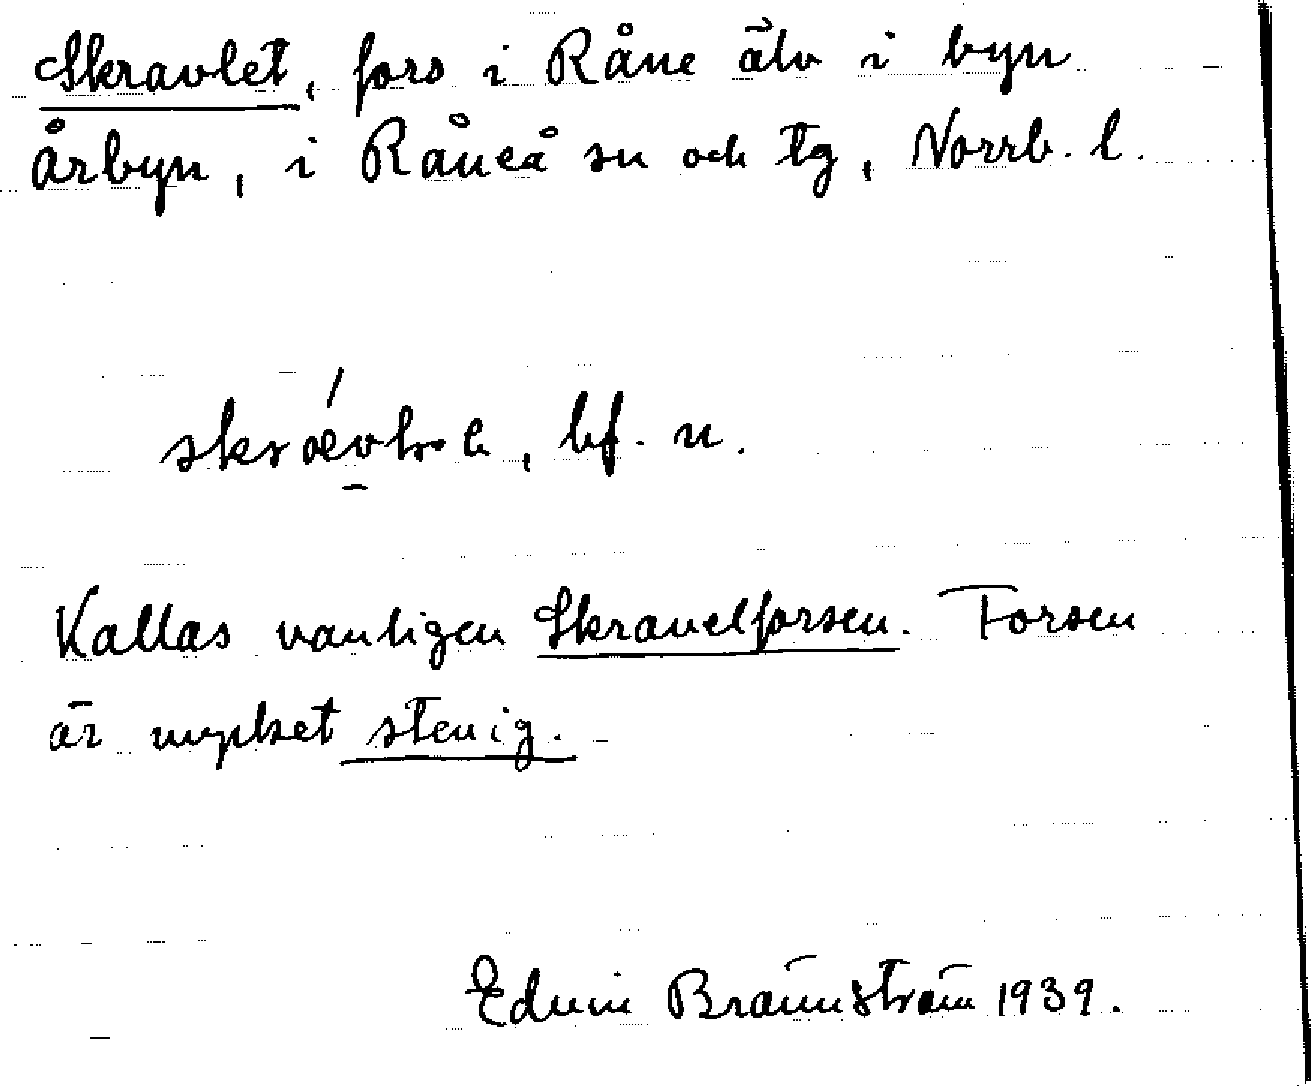 Skravlet, fors i Råne älv i byn
Årbyn, i Råneå sn och tg, Norrb. l.
bf. n.
Kallas vanligen Skravelforsen. Forsen
är mycket stenig.
Edvin Brännström 1939.